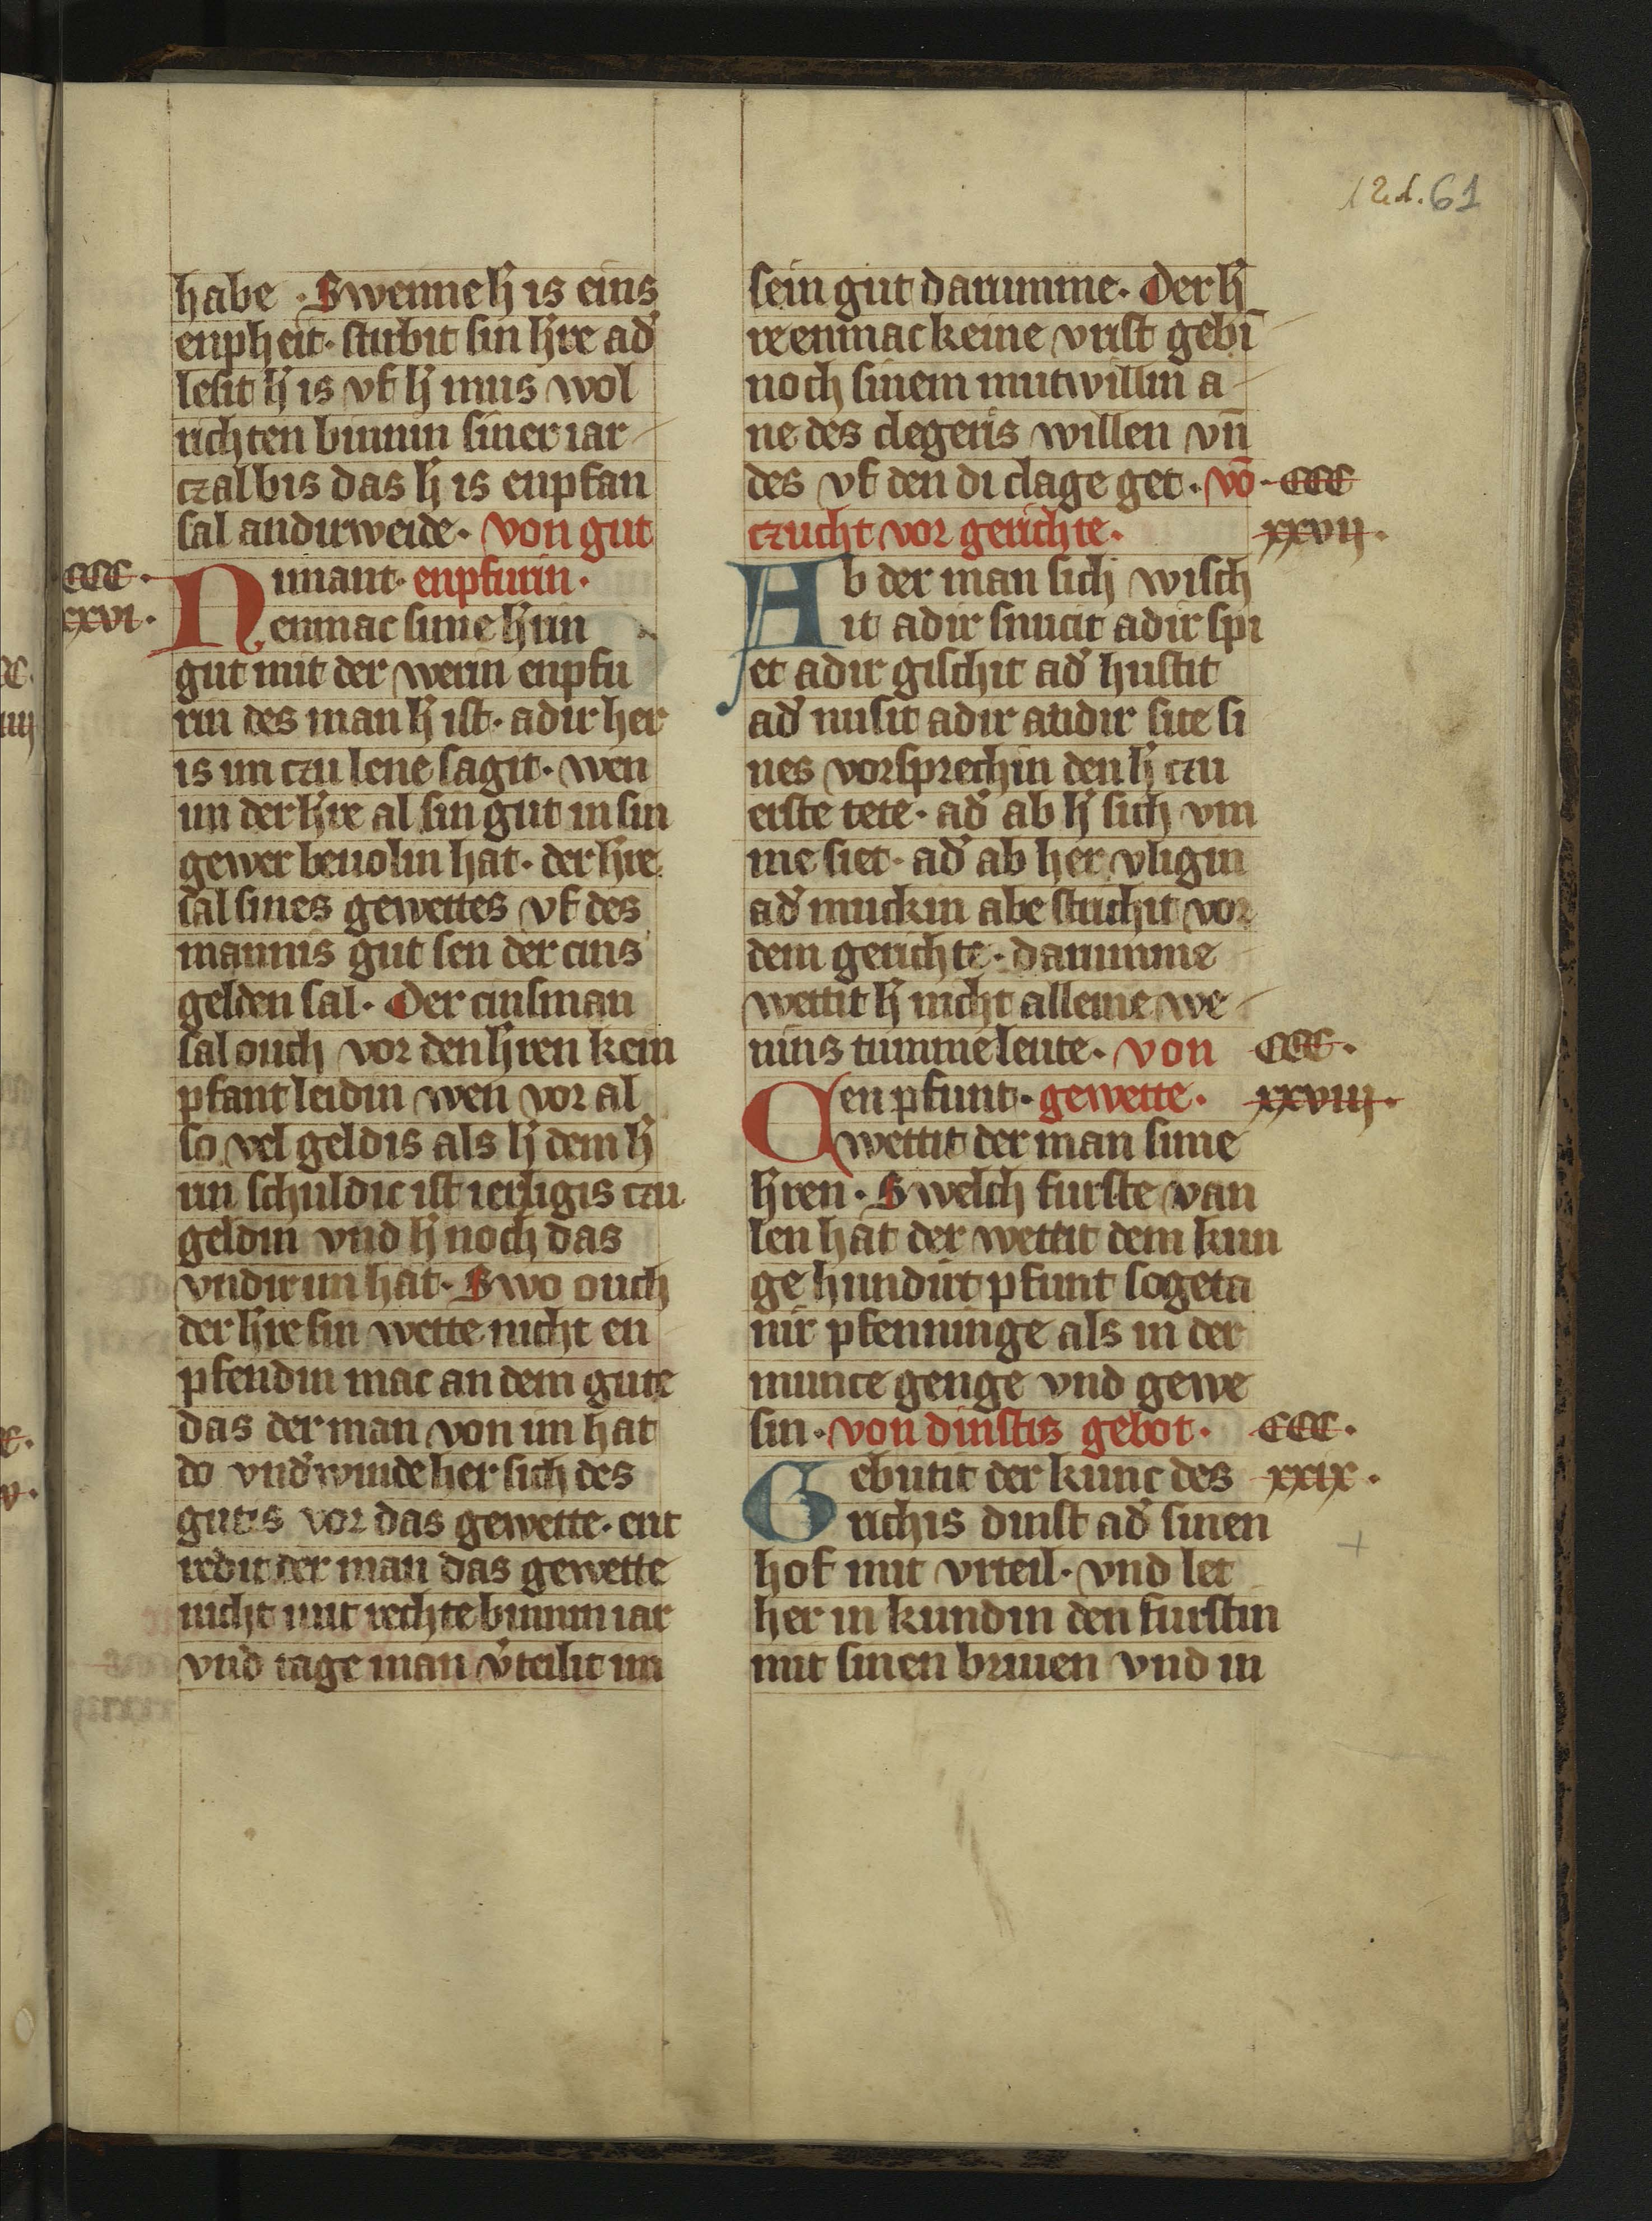 12.d. 61
habe · Swenne h̄ is eins
enpheit · stirbit sin h̄re ad᷑
lesit h̄ is vf h̄ mus wol
richten binnin siner iar
czal bis das h̄ is enpfan
sal andirweide · von gut
CCC ·
xxvi ·
Nimant · enpfurin ·
enmac sime h̄rin
gut mit der werin enpfu
rin des man h̄ ist · adir her
is im czu lene sagit · wen
im der h̄re al sin gut in sin
gewer beuolin hat · der h̄re
sal sines gewettes vf des
mannis gut sen der cins
gelden sal · Der cinsman
sal ouch vor den h̄ren kein
pfant leidin wen vor al
so vel geldis als h̄ dem h̄
im schuldic ist ierligis czu
geldin vnd h̄ noch das
vndir im hat · Swo ouch
der h̄re sin wette nicht en
pfendin mac an dem gute
das der man von im hat
do vnd᷑winde her sich des
gutis vor das gewette · ent
redit der man das gewette
nicht mit rechte binnin iar
vnd tage man v᷑teilit im
sein gut darumme · Der h̄
re enmac keine vrist gebī
noch sinem mutwillin a
ne des clegeris willen vn̄
des vf den di clage get · vō
CCC
czucht vor gerichte ·
xxvii ·
Ab der man sich wisch
it adir snucit adir spi
et adir gischit ad᷑ hustit
ad᷑ nusit adir andir site si
nes vorsprechin den h̄ czu
erste tete · ad᷑ ab h̄ sich vm
me siet · ad᷑ ab her vligin
ad᷑ muckin abe strichit vor
dem gerichte · darumme
wettit h̄ nicht alleine we
nins tumme leute · von
CCC ·
Cen pfunt · gewette ·
xxviii ·
wettit der man sime
h̄ren · Swelch furste van
len hat der wettit dem kun
ge hundirt pfunt sogeta
nir pfenninge als in der
munce genge vnd gewe
sin · von dinstis gebot ·
CCC ·
Gebutit der kunc des
xxix ·
richis dinst ad᷑ sinen
hof mit vrteil · vnd let
her in kundin den furstin
mit sinen briuen vnd in